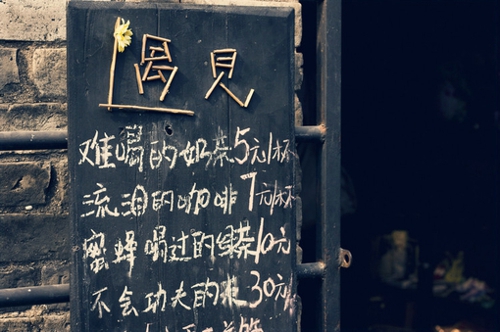 遇見
难喝的奶茶5元/杯
流泪的咖啡7元/杯
蜜蜂喝过的绿茶10元
不会功夫的 30元/